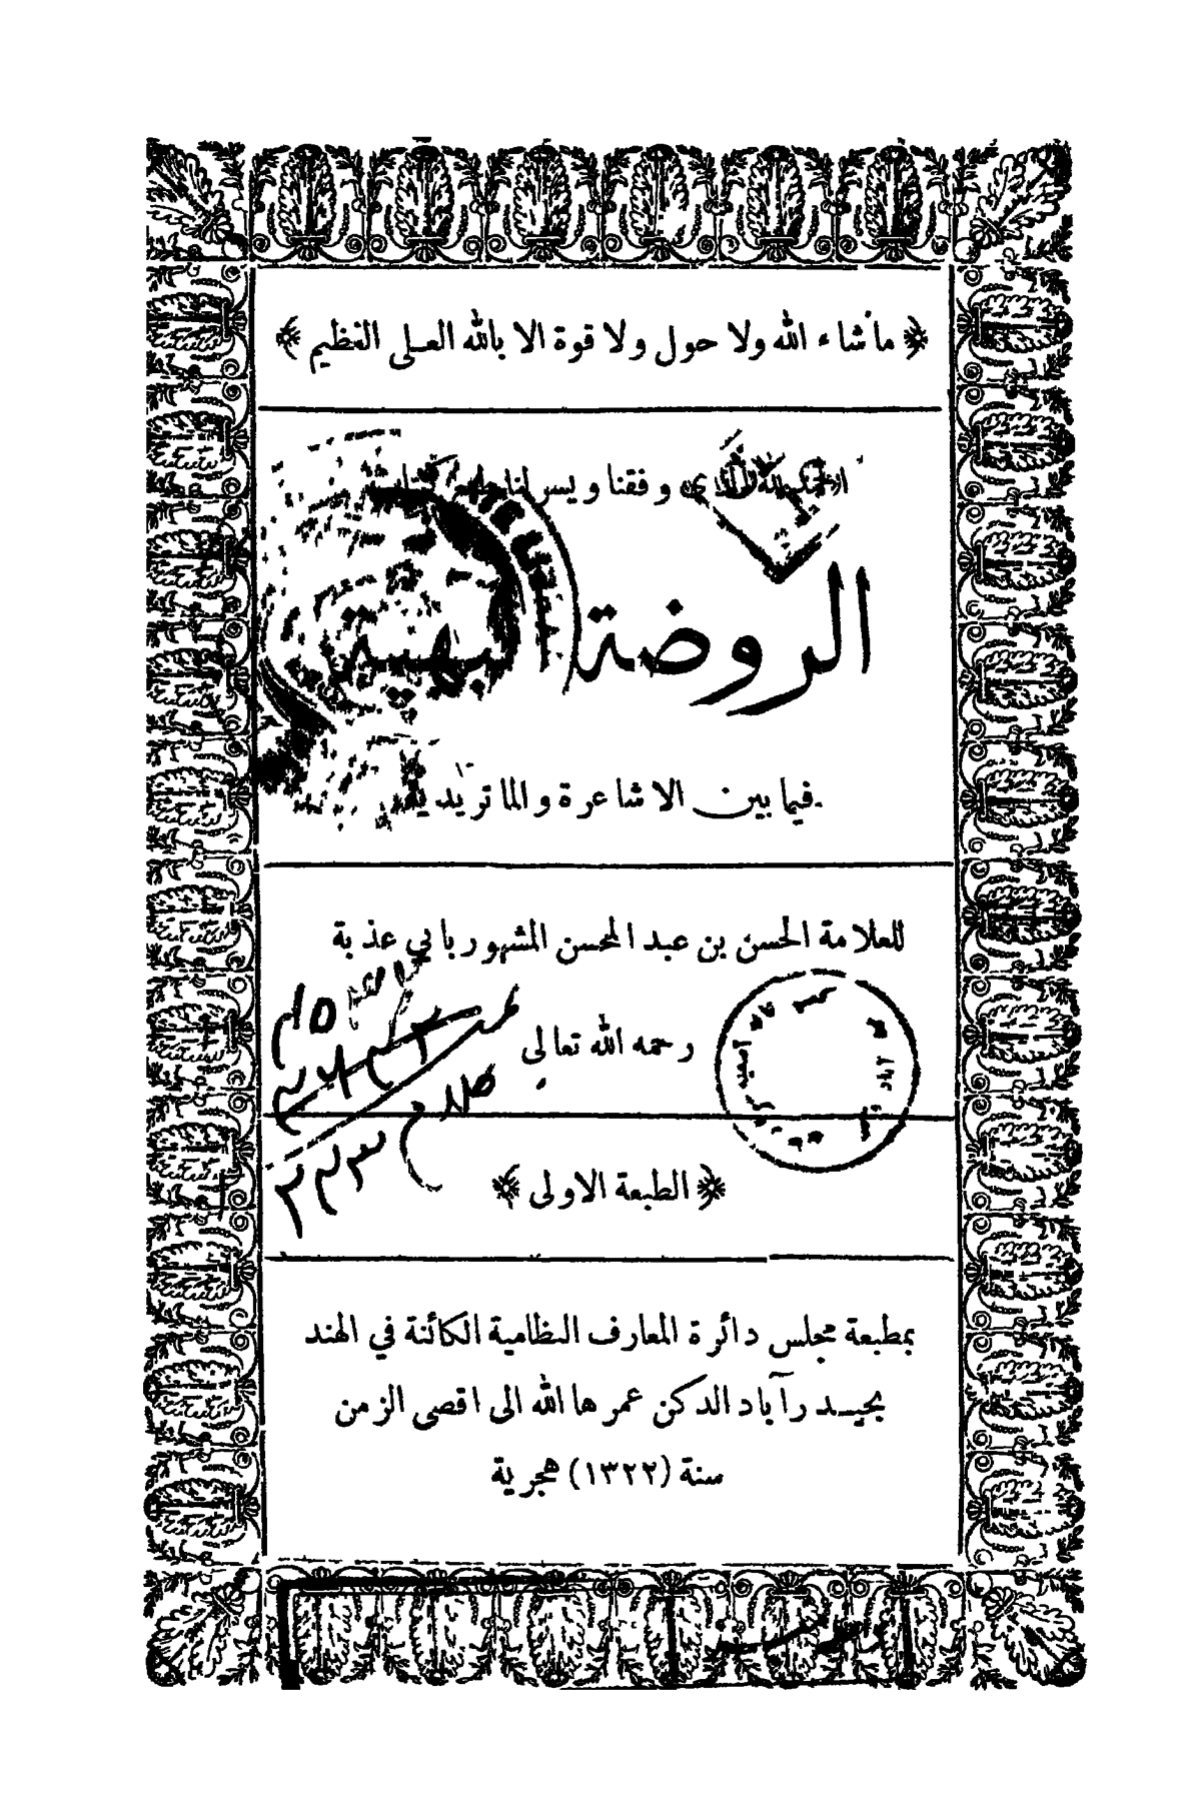 ما شاء الله ولا حول ولا قوة الا بالله العلى العظيم
وفقنا ويسر لنا طبع
الروضة البهية
فيما بين الاشاعرة والماتريدية
للعلامة الحسن بن عبد المحسن المشهور بابي عذبة
رحمه الله تعالى
﴿ الطبعة الاولى ﴾
بمطبعة مجلس دائرة المعارف النظامية الكائنة في الهند
بحيدرآباد الدكن عمرها الله الى اقصى الزمن
سنة (١٣٢٢) هجرية